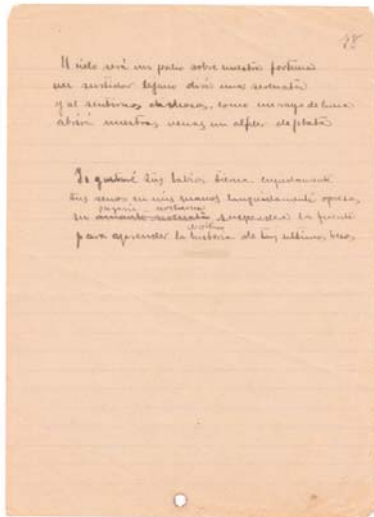 El cielo será un palio sobre nuestra fortuna
un surtidor lejano dirá una serenata
y al sentirnos dichosos, como un rayo de luna
abrirá nuestras venas un alfiler de plata
Te gustaré tus labios tierna
tus senos en mis manos languidamente opresos,
nocturna
su suspenderá la fuente
para aprender la historia de tus ultimos besos